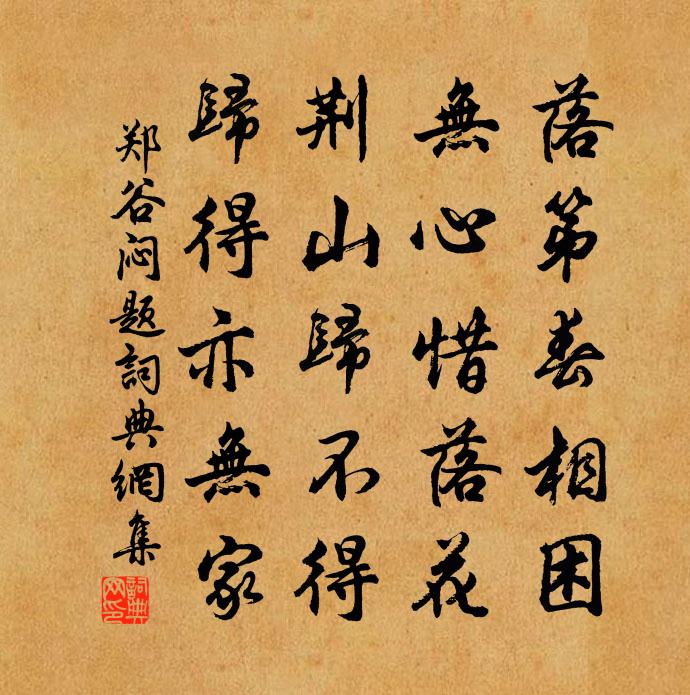 落第春相困
無心惜落花
荆山歸不得
歸得亦無家
郑谷闷题詞典網集
詞典網印